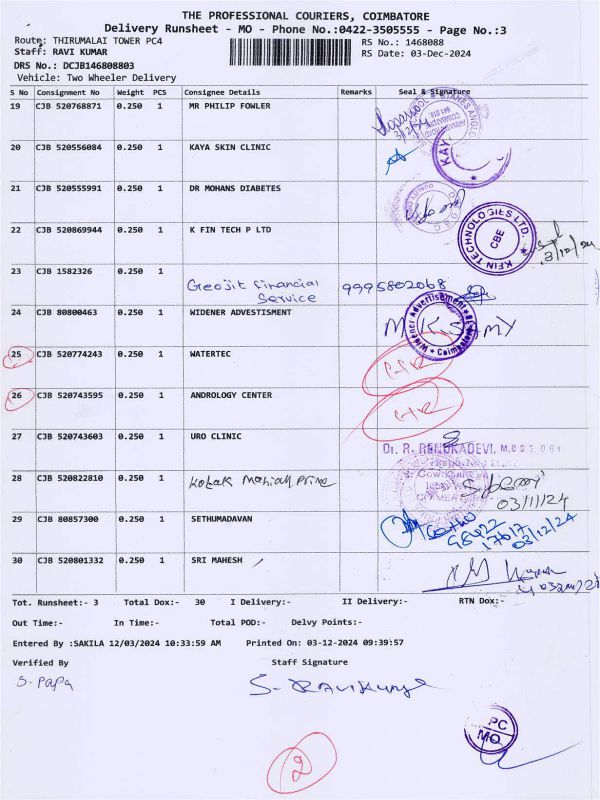 THE PROFESSIONAL COURIERS, COIMBATORE
Delivery Runsheet - MO - Phone No.:0422-3505555 - Page No.:3
Route: THIRUMALAI TOWER PC4 RS No.: 1468088
Staff: RAVI KUMAR RS Date: 03-Dec-2024
DRS No.: DCJB146808803
Vehicle: Two Wheeler Delivery
S No Consignment No Weight PCS Consignee Details Remarks Seal & Signature
19 CJB 520768871 0.250 1 MR PHILIP FOWLER
3/12/24
20 CJB 520556084 0.250 1 KAYA SKIN CLINIC KAY
21 CJB 520555991 0.250 1 DR MOHANS DIABETES
22 CJB 520869944 0.250 1 K FIN TECH P LTD KFIN TECHNOLOGIES LTD. CBE
3/12/24
23 CJB 1582326 0.250 1 Geojit financial Service 9995802068
24 CJB 80800463 0.250 1 WIDENER ADVESTISMENT Widener Advertisement Coimbatore
M.K.SAMY
25 CJB 520774243 0.250 1 WATERTEC
26 CJB 520743595 0.250 1 ANDROLOGY CENTER
27 CJB 520743603 0.250 1 URO CLINIC Dr. R. RENUKADEVI,
28 CJB 520822810 0.250 1 Kotak Mahindra Prime
03/11/24
29 CJB 80857300 0.250 1 SETHUMADAVAN Sethu
98422
17617
03/12/24
30 CJB 520801332 0.250 1 SRI MAHESH
Tot. Runsheet:- 3 Total Dox:- 30 I Delivery:- II Delivery:- RTN Dox:-
Out Time:- In Time:- Total POD:- Delvy Points:-
Entered By :SAKILA 12/03/2024 10:33:59 AM Printed On: 03-12-2024 09:39:57
Verified By Staff Signature
S. Papa S. Ravikumar
PC
MO
2